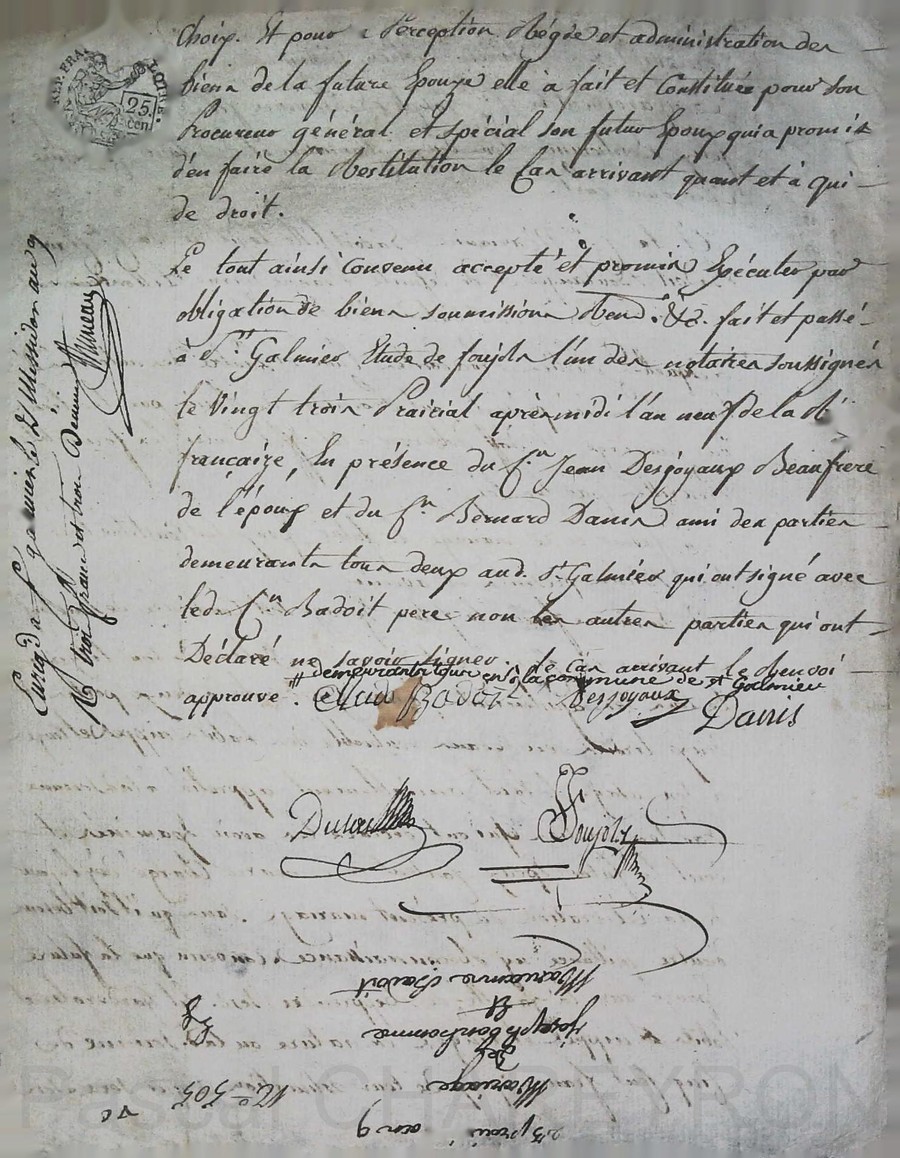 choix. Et pour la perception Régie et administration des
biens de la future Epouze elle a fait et Constitué pour son
Procureur général et spécial son futur Epoux qui a promis
d'en faire la Restitution le Cas arrivant quant et à qui
de droit.
Le tout ainsi convenu accepté et promis Exécuter par
obligation de biens soumissions Renv. &c. fait et passé
à St. Galmier Etude de foujols l'un des notaires soussignés
le Vingt trois Prairial après midi l'an neuf de la R.
francaize, En présence du Cen Jean Desjoyaux Beaufrere
de l'époux et du Cen Bernard Danis ami des parties
demeurants tous deux aud. St. Galmier qui ont signé avec
led. Cen Badoit pere non les autres parties qui ont
Déclaré ne savoir signer. de Cas arrivant le Renvoi
demeurants tous en la commune de St Galmier
approuvé. Badoit Desjoyaux
Danis
Foujols
Enrg. à St galmier le Messidor an 9
R. trois francs et trois Decimes
REP. FRA.
LOIRE.
25.
cen
23 prai an 9
Mariage
de
joseph bonhomme
Et
Marianne Badoit
No 505
Pascal CHAREYRON